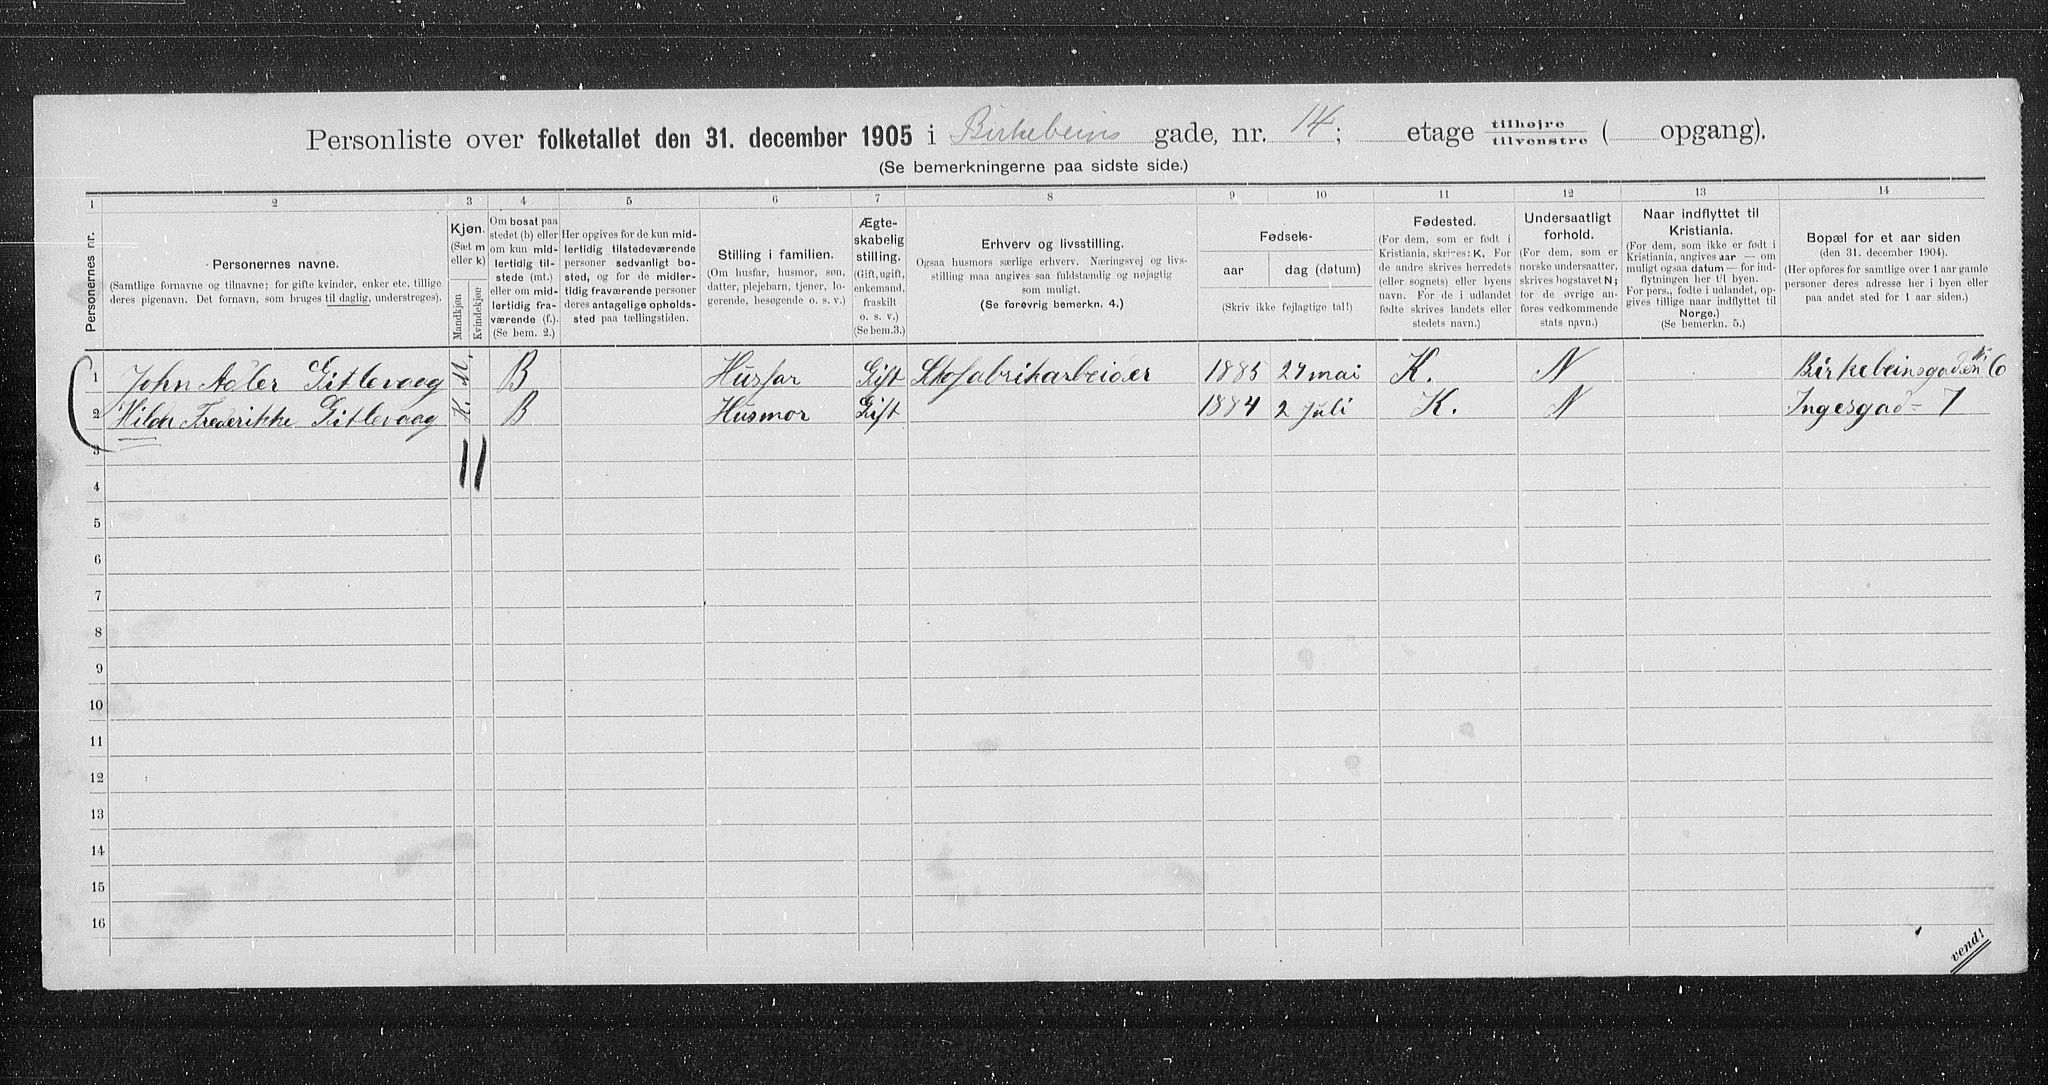 Personliste over folketallet den 31. december 1905 i Birkebeins gade, nr. 14; etage tilhøjre tilvenstre ( opgang).
(Se bemerkningerne paa sidste side.)
1 2 3 4 5 6 7 8 9 10 11 12 13 14
Personernes nr.
Personernes navne.
(Samtlige fornavne og tilnavne; for gifte kvinder, enker etc. tillige
deres pigenavn. Det fornavn, som bruges til daglig, understreges).
Kjøn.
(Sæt m
eller k)
Mandkjøn
Kvindekjøn
Om bosat paa
stedet (b) eller
om kun mid-
lertidig til-
stede (mt.)
eller om mid-
lertidig fra-
værende (f.).
(Se bem. 2.)
Her opgives for de kun mid-
lertidig tilstedeværende
personer sedvanligt bo-
sted, og for de midler-
tidig fraværende personer
deres antagelige opholds-
sted paa tællingstiden.
Stilling i familien.
(Om husfar, husmor, søn,
datter, plejebarn, tjener, lo-
gerende, besøgende o. s. v.)
Ægte-
skabelig
stilling.
(Gift, ugift,
enkemand,
fraskilt
o. s. v.)
(Se bem.3.)
Erhverv og livsstilling.
Ogsaa husmors særlige erhverv. Næringsvej og livs-
stilling maa angives saa fuldstændig og nøjagtig
som muligt.
(Se forøvrig bemerkn. 4.)
Fødsels-
aar
dag (datum)
(Skriv ikke fejlagtige tal!)
Fødested.
(For dem, som er født i
Kristiania, skrives: K. For
de andre skrives herredets
(eller sognets) eller byens
navn. For de i udlandet
fødte skrives landets eller
stedets navn.)
Undersaatligt
forhold.
(For dem, som er
norske undersaatter,
skrives bogstavet N;
for de øvrige an-
føres vedkommende
stats navn.)
Naar indflyttet til
Kristiania.
(For dem, som ikke er født i
Kristiania, angives aar — om
muligt ogsaa datum — for ind-
flytningen her til byen.
For pers., fødte i udlandet, op-
gives tillige naar indflyttet til
Norge.)
(Se bemerkn. 5.)
Bopæl for et aar siden
(den 31. december 1904).
(Her opføres for samtlige over 1 aar gamle
personer deres adresse her i byen eller
paa andet sted for 1 aar siden.)
1 John Adler Gitlevaag M. B Husfar Gift Skofabrikarbeider 1885 27 mai K. N Birkebeinsgaden No 6
2 Hilda Frederikke Gitlevaag K. B Husmor Gift 1884 2 Juli K. N Ingesgad- 7
3
4
5
6
7
8
9
10
11
12
13
14
15
16
vend!